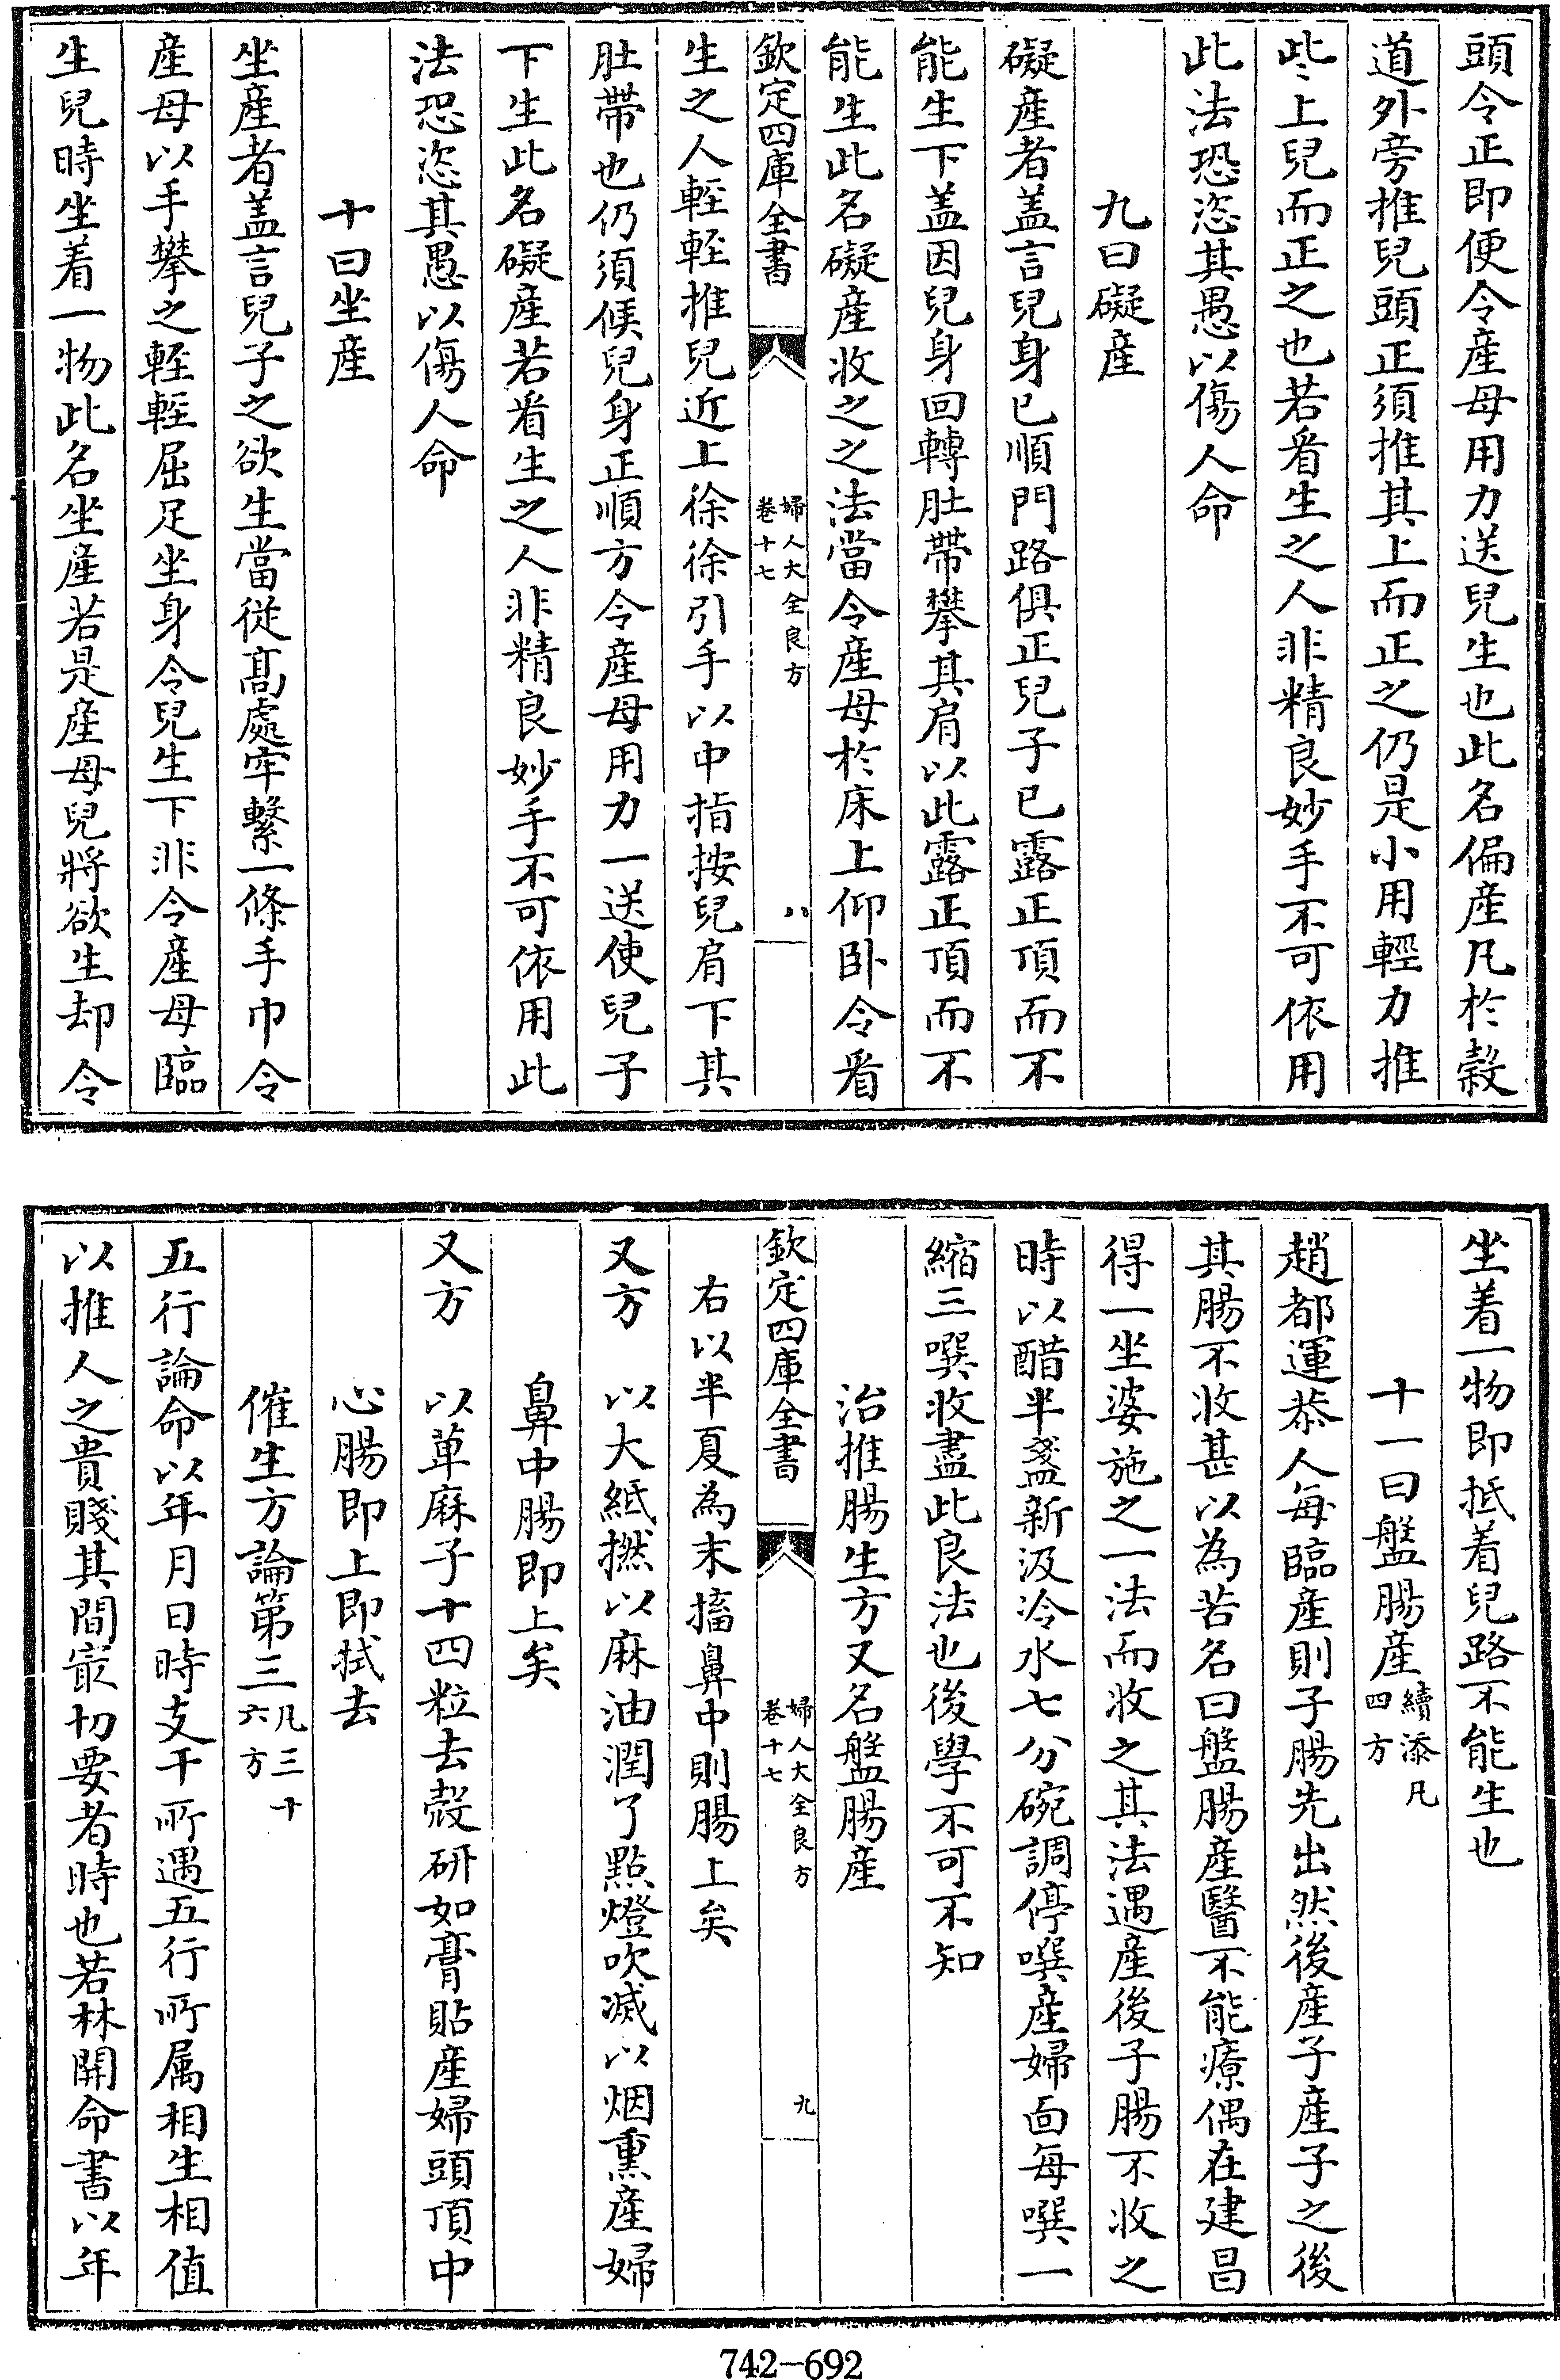 頭令正即便令産母用力送兒生也此名偏産凡於榖
道外旁推兒頭正須推其上而正之仍是小用輕力推
此、上兒而正之也若看生之人非精良妙手不可依用
此法恐恣其愚以傷人命
九曰礙産
礙産者盖言兒身已順門路俱正兒子已露正頂而不
能生下盖因兒身回轉肚帶攀其肩以此露正頂而不
能生此名礙産收之之法當令産母於床上仰卧令看
欽定四庫全書
婦人大全良方
卷十七
八
生之人輕輕推兒近上徐徐引手以中指按兒肩下其
肚帶也仍須候兒身正順方令産母用力一送使兒子
下生此名礙産若看生之人非精良妙手不可依用此
法恐恣其愚以傷人命
十曰坐産
坐産者盖言兒子之欲生當從髙處牢繫一條手巾令
産母以手攀之輕輕屈足坐身令兒生下非令産母臨
生兒時坐着一物此名坐産若是産母兒將欲生却令
坐着一物即抵着兒路不能生也
十一曰盤腸産續添凡
四方
趙都運恭人每臨産則子腸先出然後産子産子之後
其腸不收甚以為苦名曰盤腸産醫不能療偶在建昌
得一坐婆施之一法而收之其法遇産後子腸不收之
時以醋半盞新汲冷水七分碗調停噀産婦面每噀一
縮三噀收盡此良法也後學不可不知
治推腸生方又名盤腸産
欽定四庫全書
婦人大全良方
卷十七
九
右以半夏為末搐鼻中則腸上矣
又方　以大紙撚以麻油潤了點燈吹滅以烟熏産婦
鼻中腸即上矣
又方　以萆麻子十四粒去殻研如膏貼産婦頭頂中
心腸即上即拭去
催生方論第三凡三十
六方
五行論命以年月日時支干所遇五行所属相生相值
以推人之貴賤其間㝡切要者時也若林開命書以年
742-692